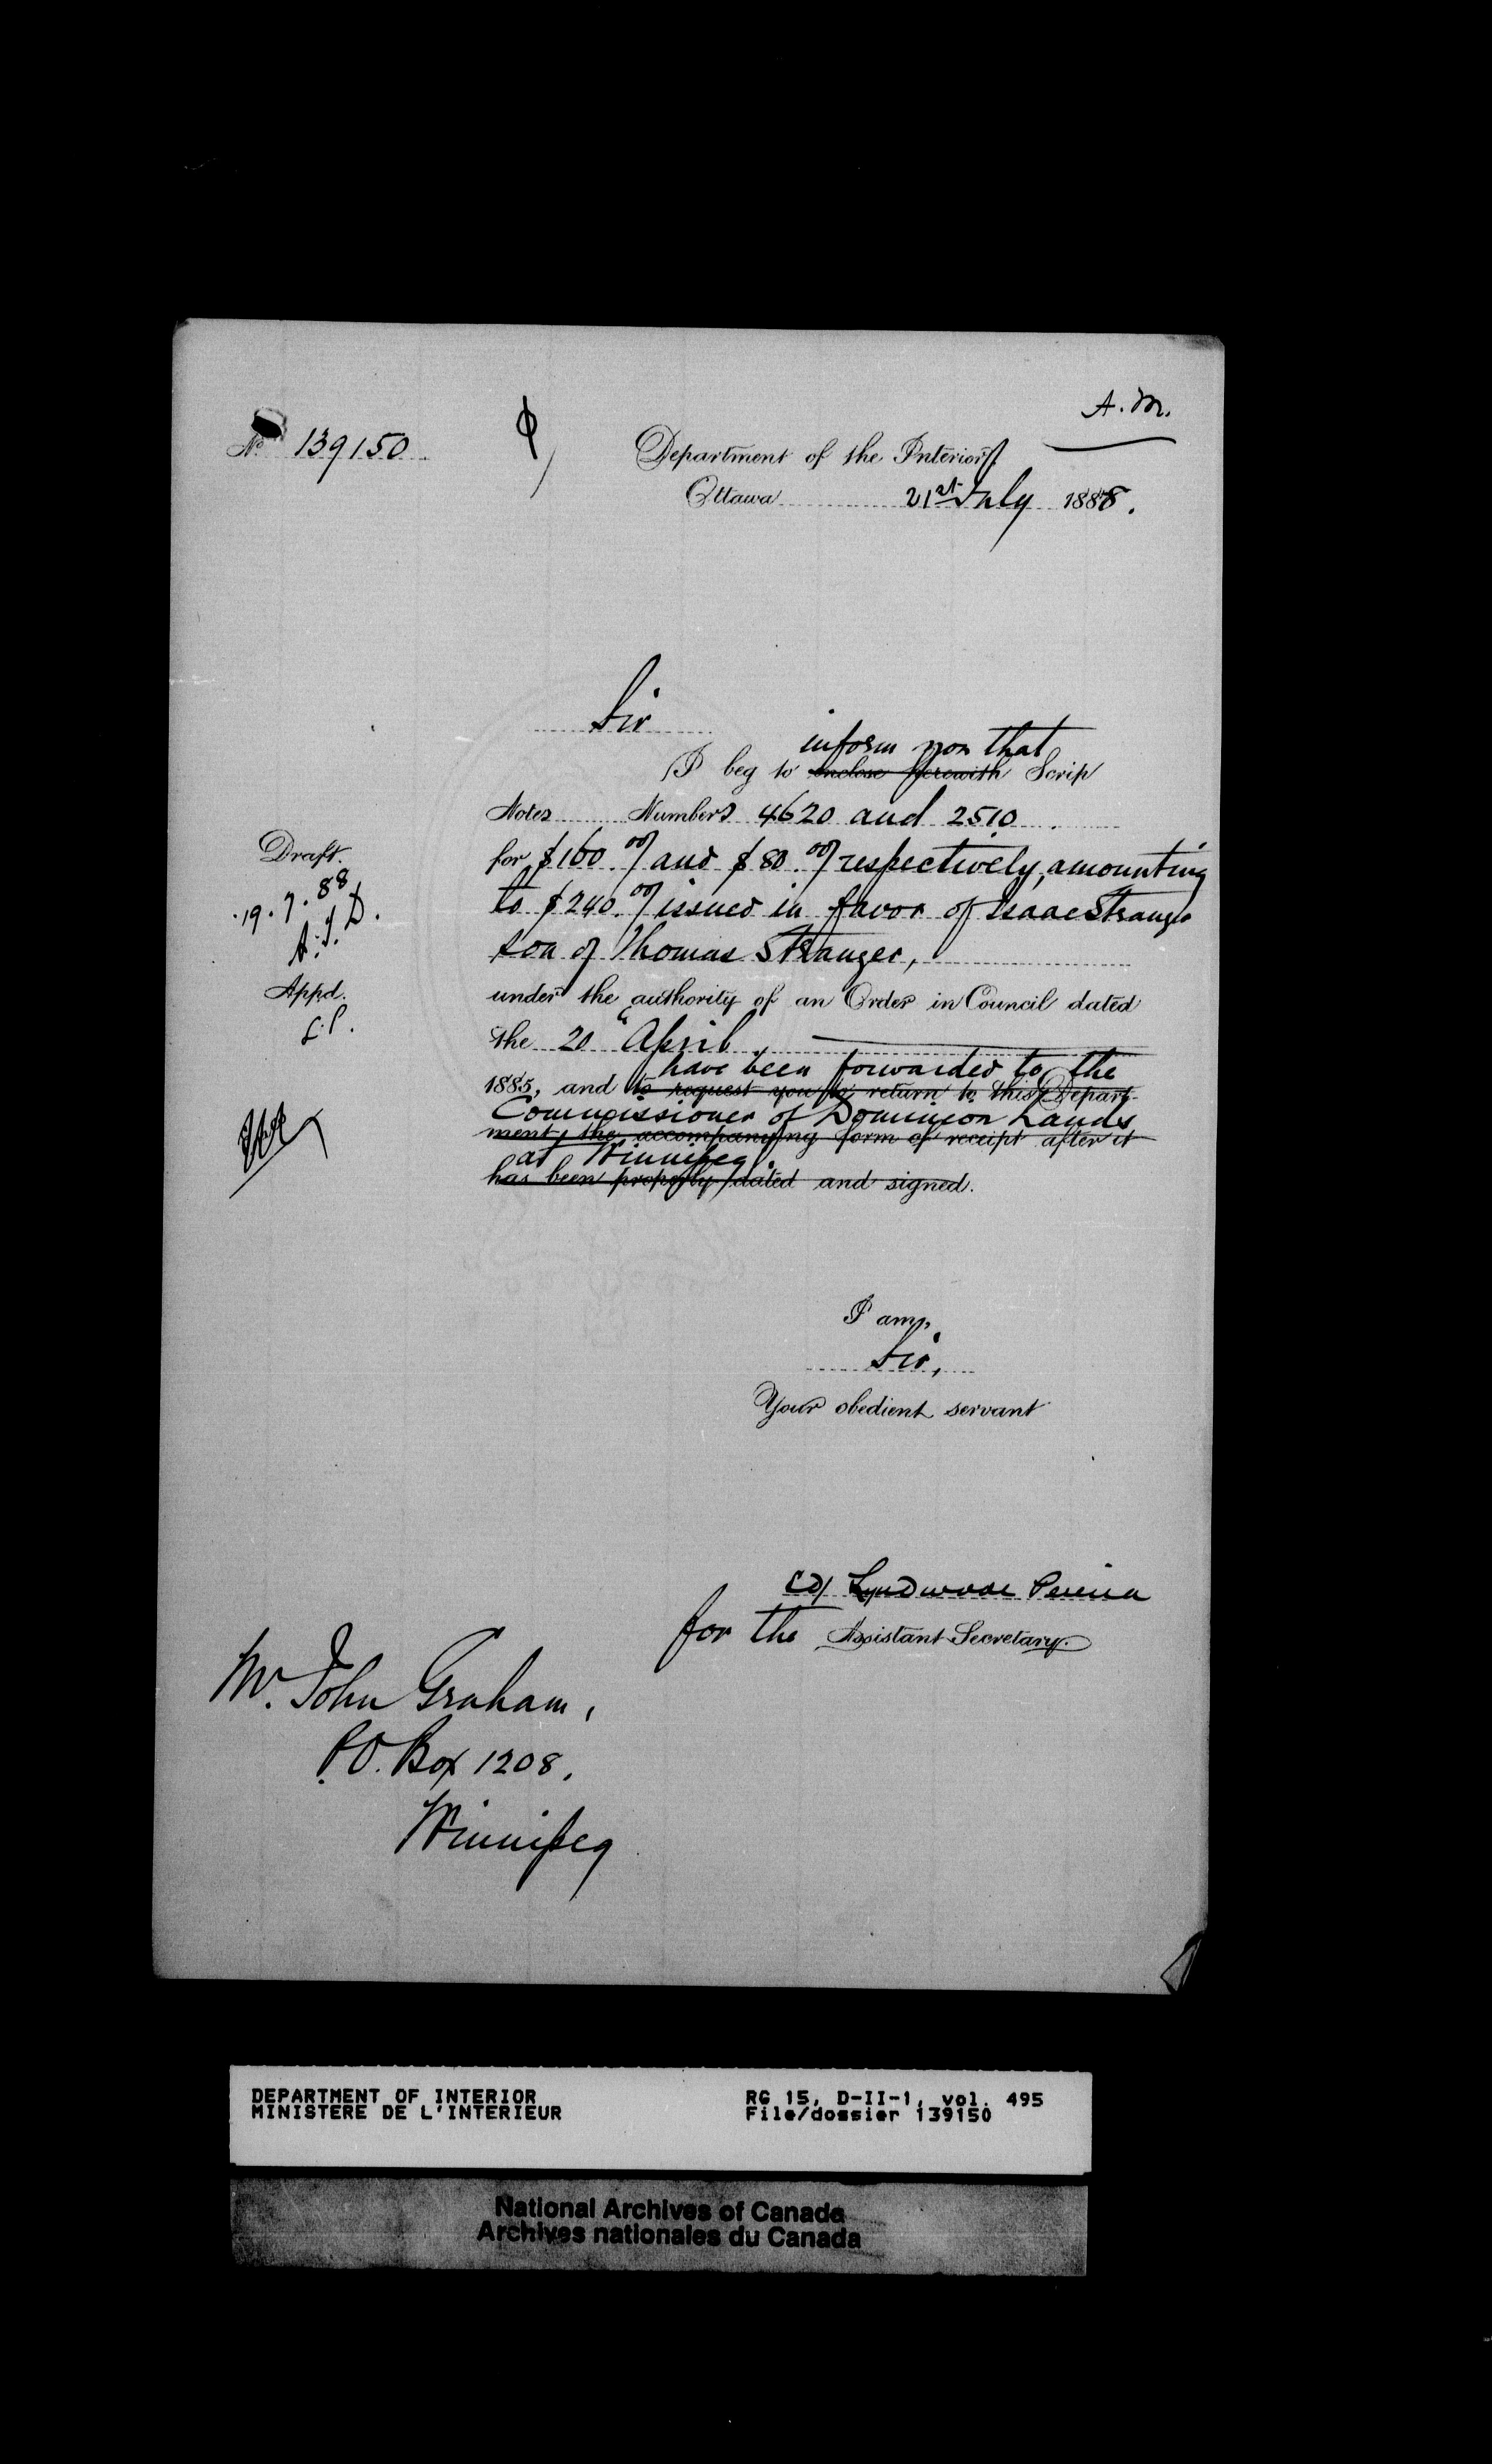 A. M.
No 139150
Department of the Interior,
Ottawa 21st July 1888.
Sir
inform you that
I beg to enclose herewith Scrip
Notes Numbers 4620 and 2510
for $160.00/ and $80.00/ respectively, amounting
to $240.00/ issued in favor of Isaac Stranger
son of Thomas Stranger,
under the authority of an Order in Council dated
the 20" April
have been forwarded to the
1885, and to request you to return to this Depart-
Commissioner of Dominion Lands
ment, the accompanying form of receipt after it
at Winnipeg.
has been properly dated and signed.
Draft.
19.7.88
A.J.D.
Appd.
L.P.
I am,
Sir,
Your obedient servant
Lyndwode Pereira
for the Assistant Secretary.
Mr. John Graham,
P.O. Box 1208,
Winnipeg
DEPARTMENT OF INTERIOR RG 15, D-II-1, vol. 495
MINISTERE DE L'INTERIEUR File/dossier 139150
National Archives of Canada
Archives nationales du Canada